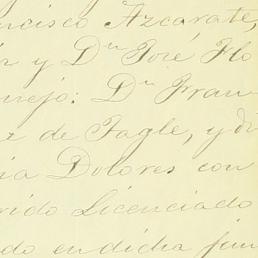 ncisco Azcarate,
n y Dn José Flo
nejo: Dn Fran
z de Tagle, y di
ia Dolores con
rido Licenciado
do en dicha jun